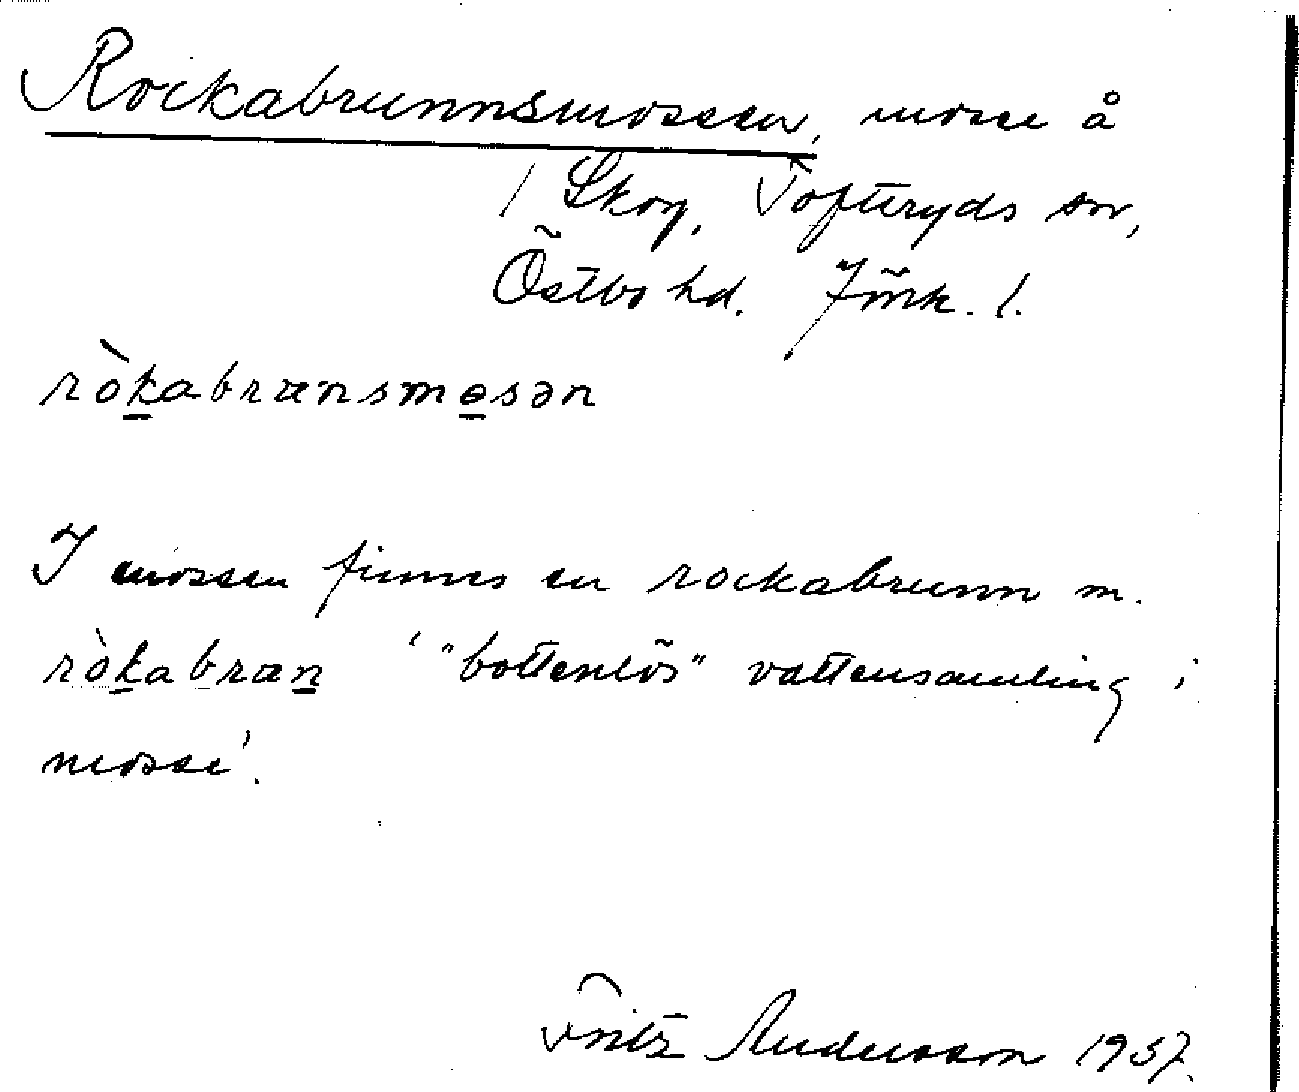 Rockabrunnsmossen, mosse å
/ Skog, Tofteryds sn,
Östbo hd. Jönk. l.
ròkabrænsmosən
I mossen finnes en rockabrunn m.
ròkabræn ' "bottenlös" vattensamling i
mosse'.
Fritz Andersson 1937.